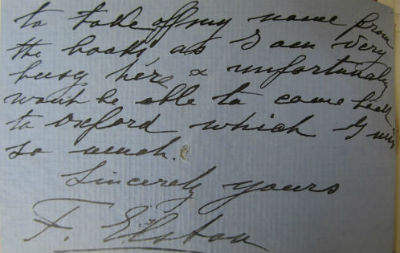 to take off my name from
the books as I am very
busy here & unfortunately
wont be able to come back
to Oxford which I miss
so much.
Sincerely yours
F. Elston